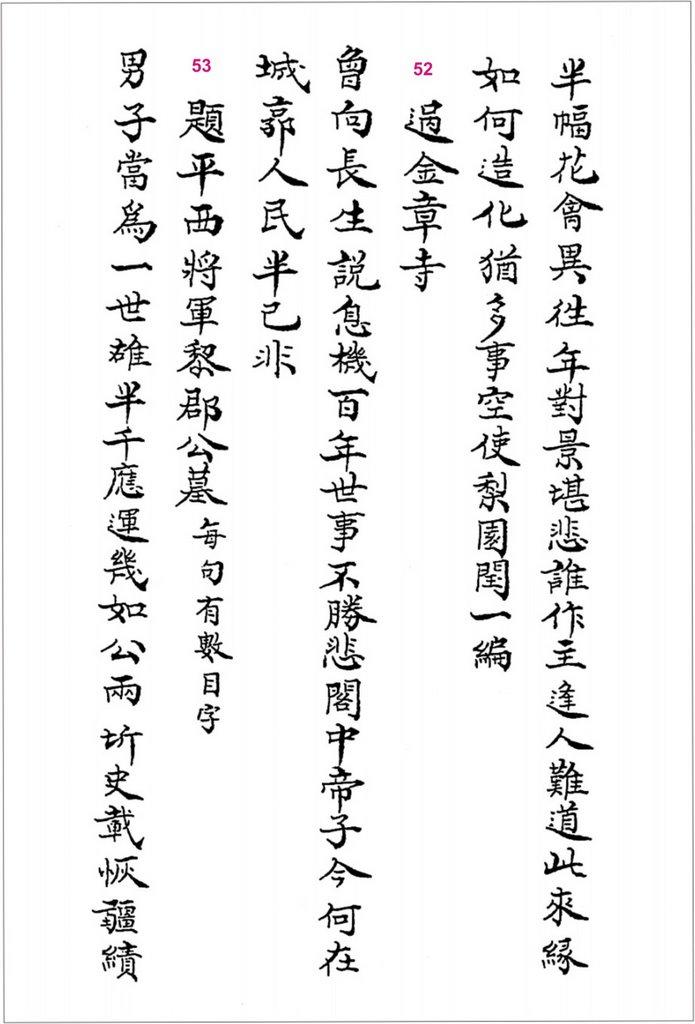 半幅花會異往年對景堪悲誰作主逢人難道此來緣
如何造化猶多事空使梨園閏一編
52
過金章寺
曾向長生説息機百年世事不勝悲閣中帝子今何在
城郭人民半已非
53
題平西將軍黎郡公墓 每句有數目字
男子當爲一世雄半千應運幾如公兩圻史載恢疆績